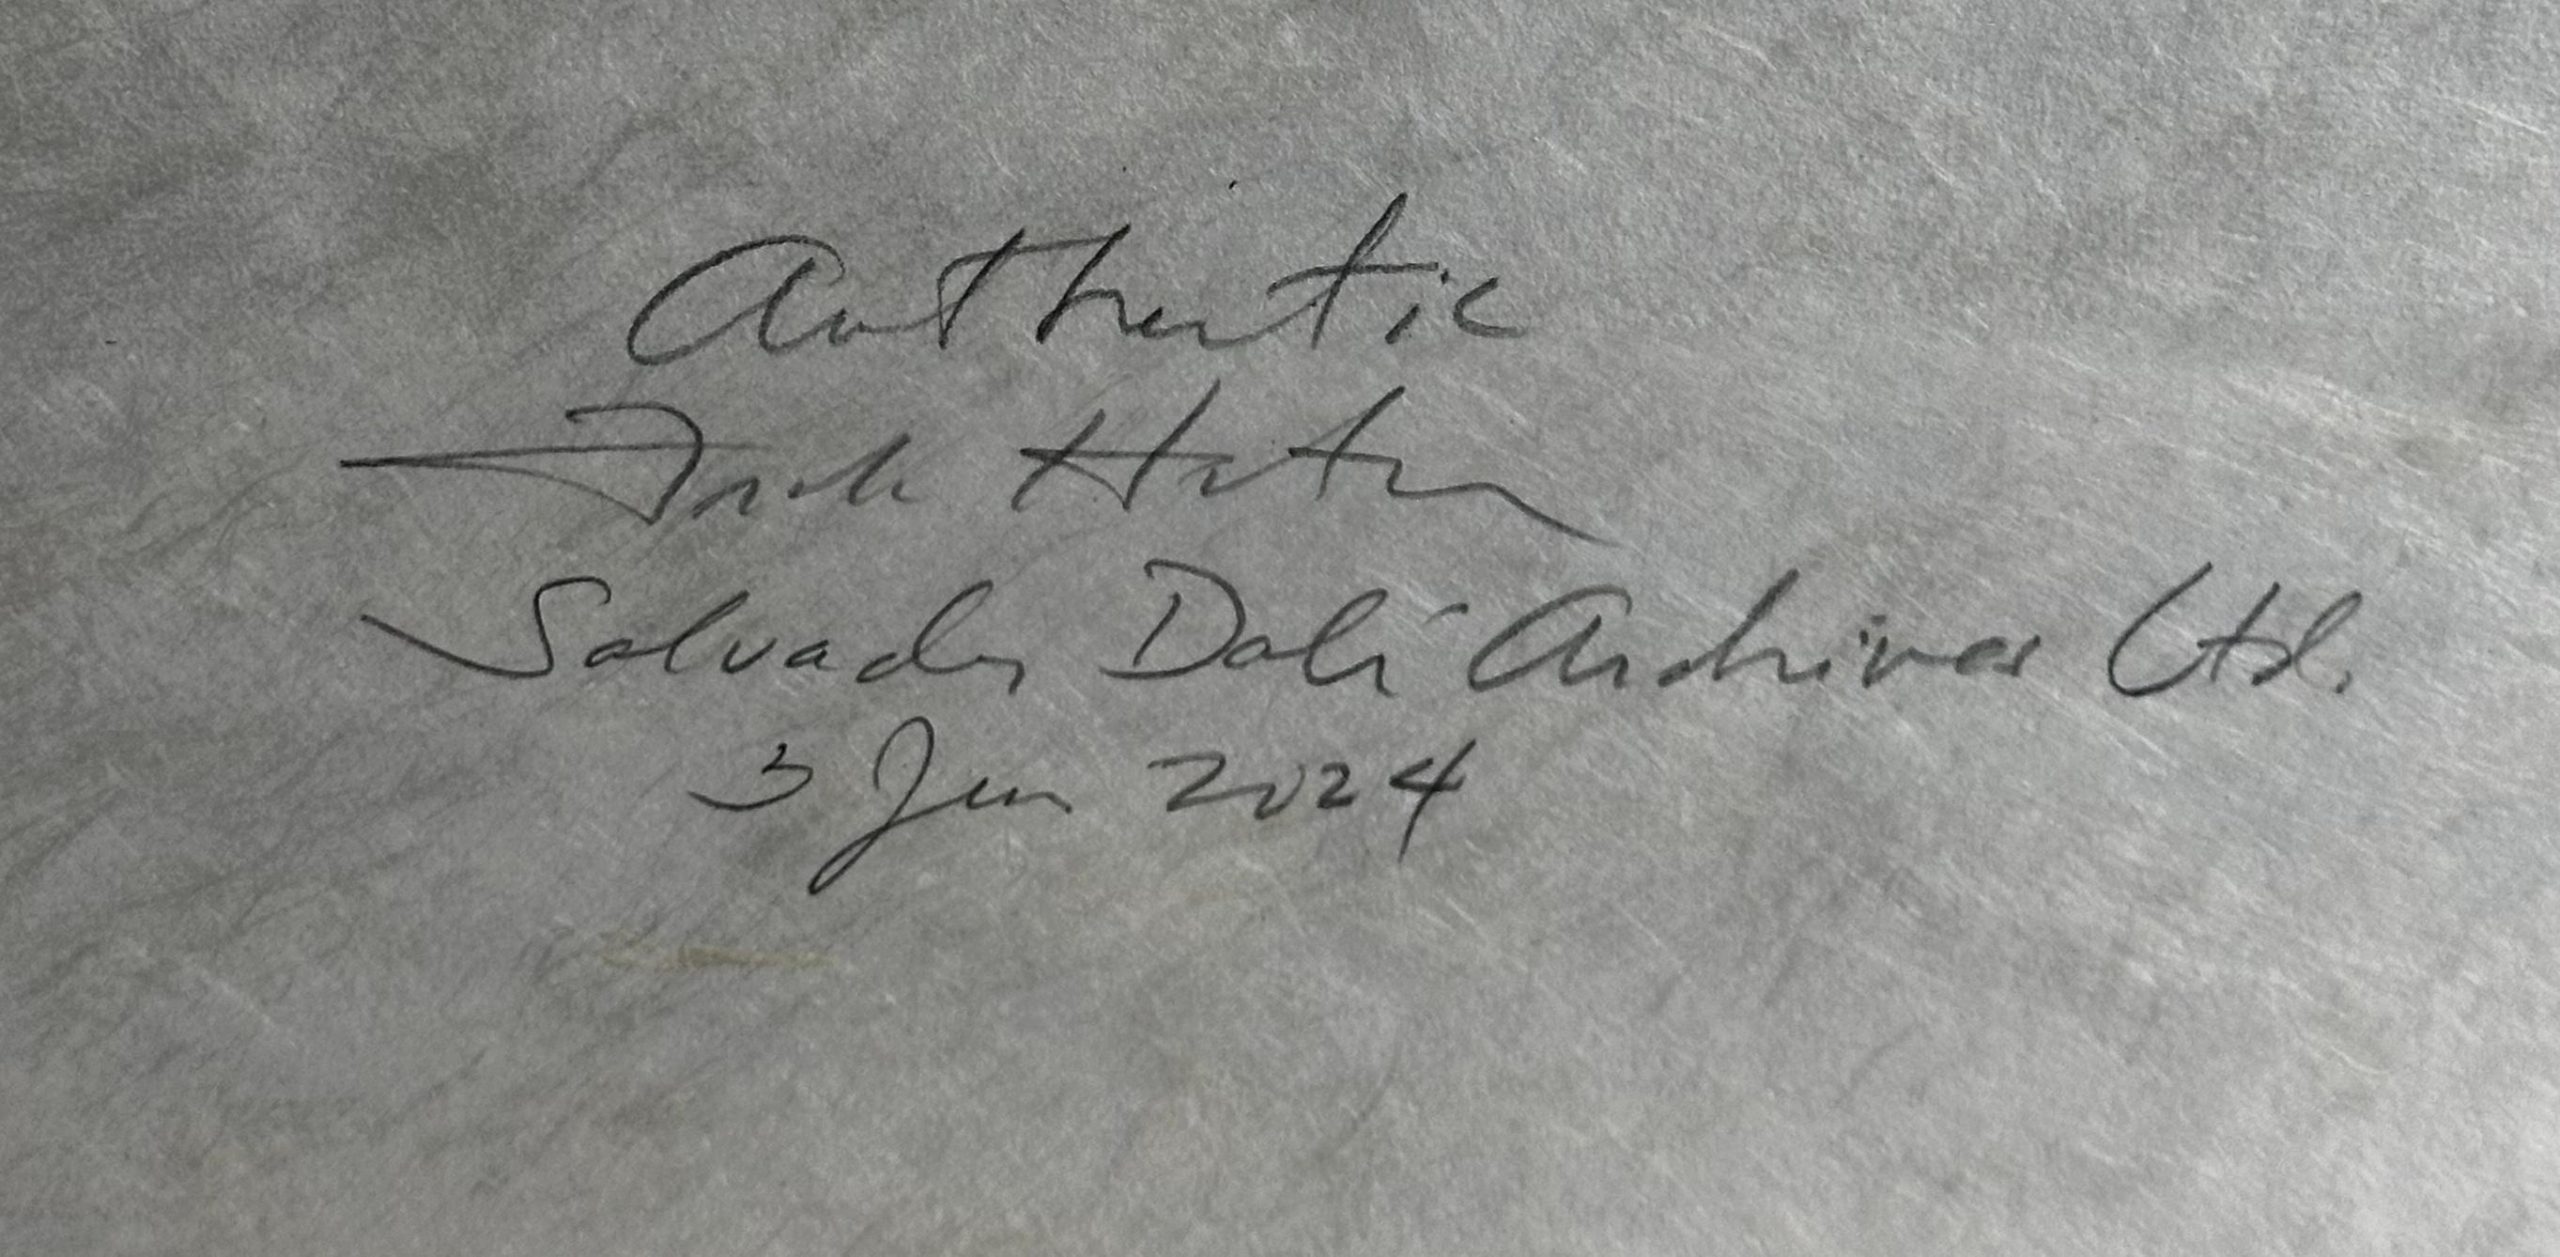 Authentic
Frank Hunter
Salvador Dalí Archives Ltd.
3 Jun 2024